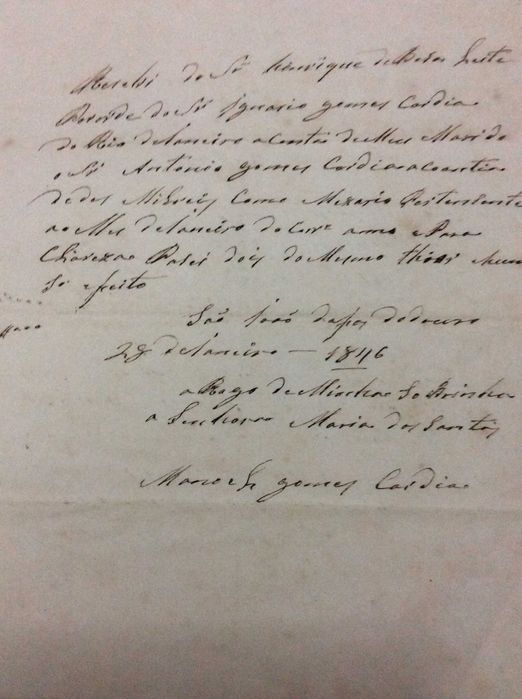 Resebi do Sr Henrique de Leite
do Sr Ignacio gomes Cardia
do Rio de Janeiro a Conta de Meu Marido
o Sr António gomes Cardia a coantia
de des Milreis Como Mezario
ao Mes de Janeiro do Corre anno e Para
Clareza Pasei dois do Mesmo thior
So efeito
São João da fos do douro
28 de Janeiro — 1846
a Rogo de Minha Sobrinha
a Senhora Maria dos Santos
Manoel gomes Cardia